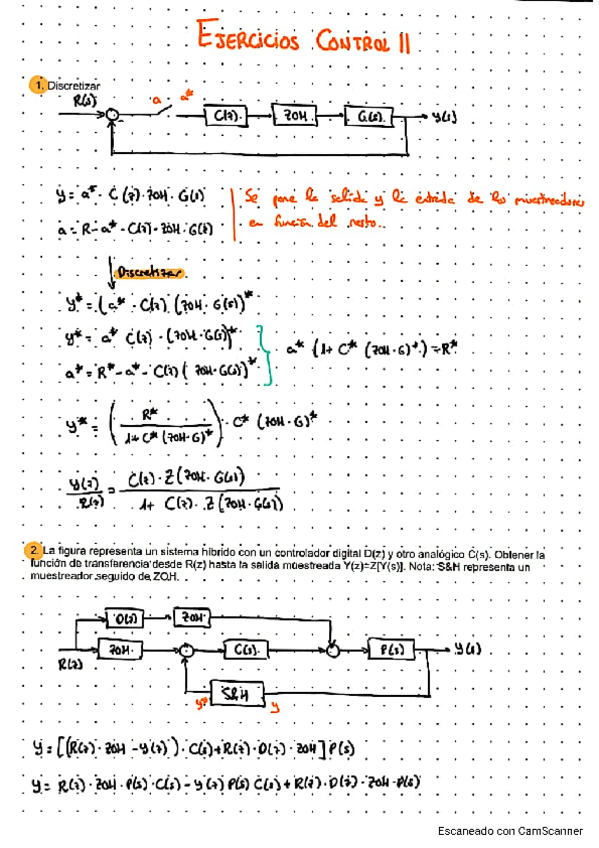 EJERCICIOS CONTROL II
1. Discretizar
R(s) a a* C(z) ZOH G(s) y(s)
y = a* · C(z) · ZOH · G(s)
a = R - a* · C(z) · ZOH · G(s)
Se pone la salida y la entrada de los muestreadores
en función del resto.
Discretizar
y* = (a* · C(z) (ZOH · G(s))*
y* = a* C(z) · (ZOH · G(s))*
a* = R* - a* - C(z) (ZOH · G(s))*
a* (1 + C* (ZOH · G)*) = R*
y* = (R* / 1 + C* (ZOH · G)*) · C* (ZOH · G)*
y(z) / R(z) = C(z) · Z(ZOH · G(s)) / 1 + C(z) · Z(ZOH · G(s))
2. La figura representa un sistema híbrido con un controlador digital D(z) y otro analógico C(s). Obtener la
función de transferencia desde R(z) hasta la salida muestreada Y(z)=Z[Y(s)]. Nota: S&H representa un
muestreador seguido de ZOH.
D(z) ZOH
R(z) ZOH C(s) P(s) y(s)
S&H
y* y
y = [(R(z) · ZOH - y(z)) · C(s) + R(z) · D(z) · ZOH] P(s)
y = R(z) · ZOH · P(s) · C(s) - y(z) P(s) C(s) + R(z) · D(z) · ZOH · P(s)
Escaneado con CamScanner